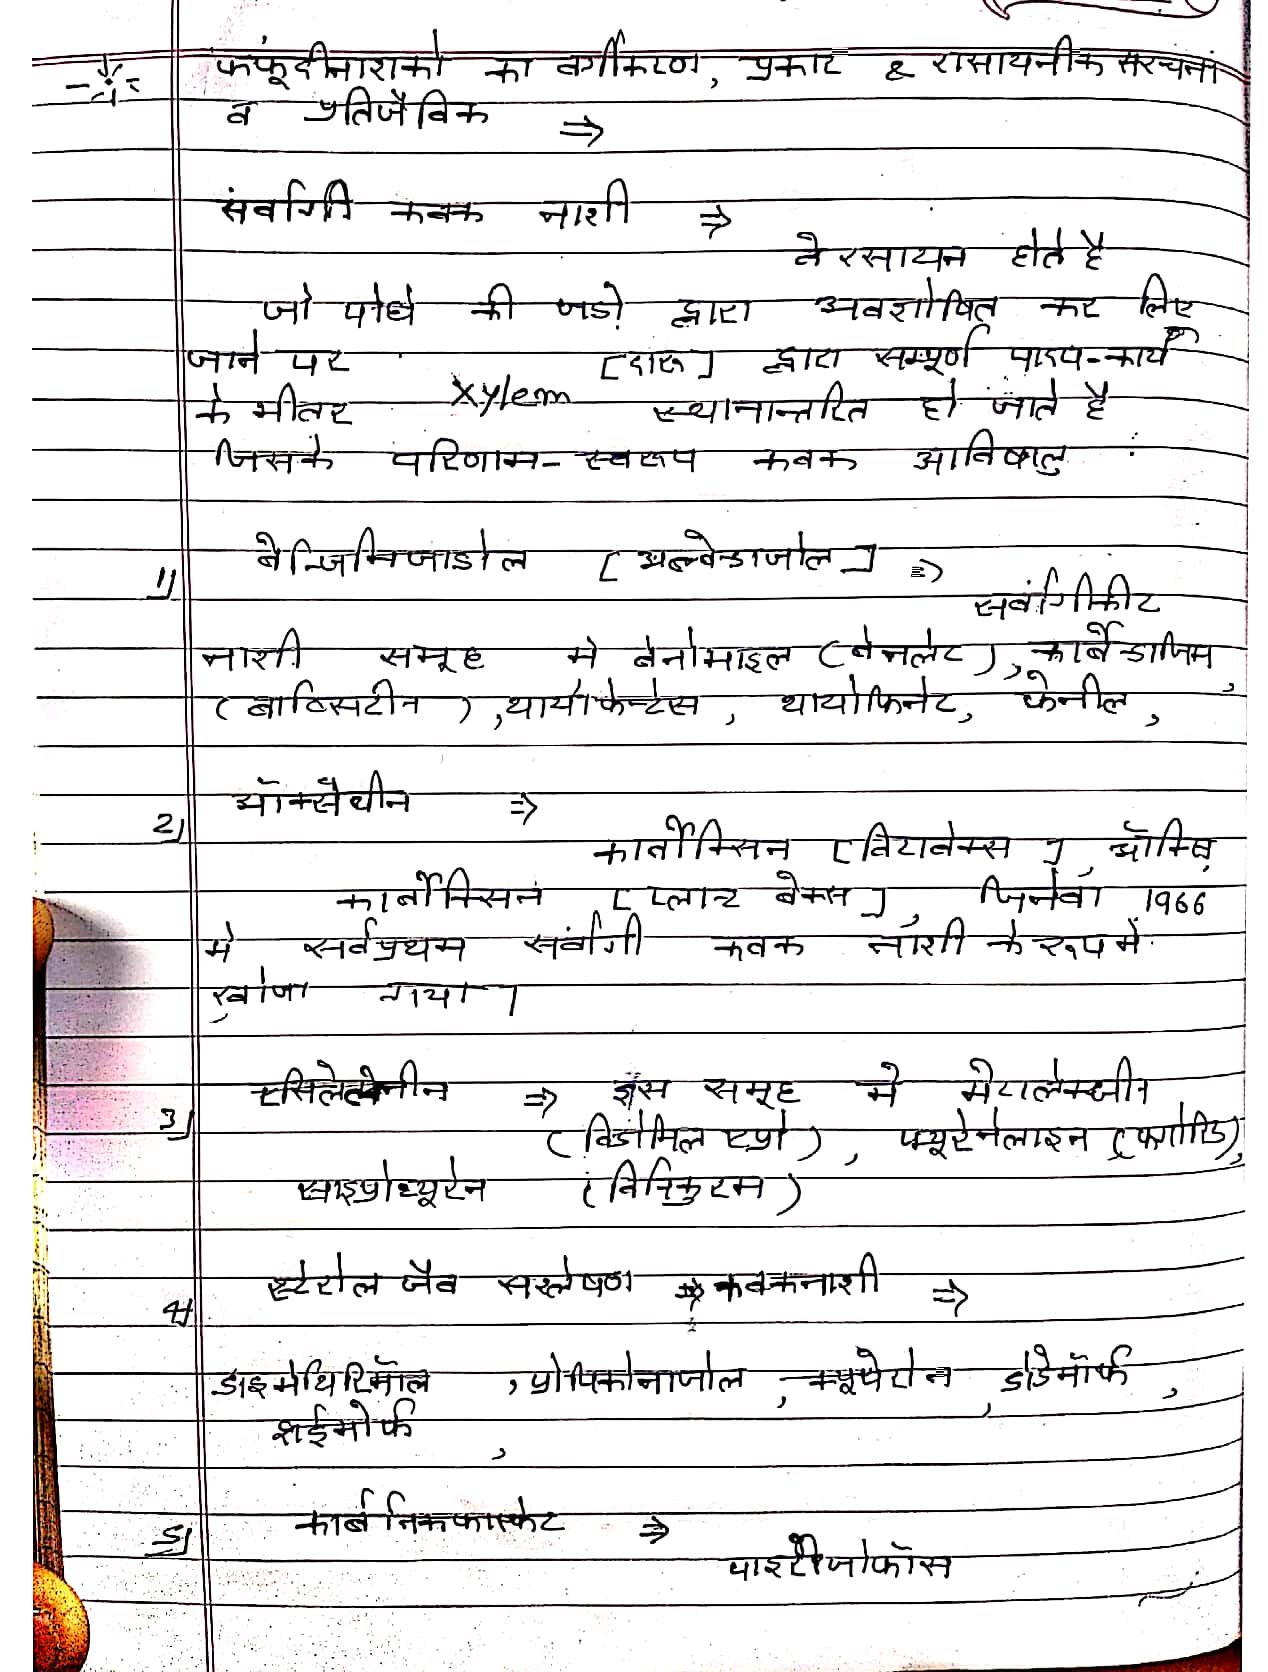 फफूंदीनाशको का वर्गीकरण, प्रकार & रासायनीक संरचना
व प्रतिजैविक ⇒
संर्वागी कवक नाशी ⇒
वे रसायन होते है
जो पोधे की जडो द्वारा अवशोषित कर लिए
जाने पर [दारू] द्वारा सम्पूर्ण पादप-कार्य
के भीतर Xylem स्थानान्तरित हो जाते है
जिसके परिणाम-स्वरूप कवक आविषालु
1) बेन्जिमिजाडोल [अल्बेन्डाजोल] ⇒
सवांगिकीट
नाशी समूह मे बेनोमाइल (बेनलेट), कार्बेन्डाजिम,
(बाविस्टीन), थायोफेन्टेस, थायोफिनेट, फेनील,
2) ऑक्सैथीन ⇒
कार्बोक्सिन [विटावेक्स], ऑक्सि
कार्बोक्सिन [प्लान्ट वेक्स], जिनेवा 1966
मे सर्वप्रथम संर्वागी कवक नाशी के रूप में
खोजा गया।
3) एसिलेलेनीन ⇒ इस समूह मे मेटालेक्जीन
(रिडोमिल एप्रो), फ्यूरेनेलाइन (फ्गोरिड),
साइप्रोफ्यूरेन (विनिकुरम)
4) स्टेरोल जैव सश्लेषण कवकनाशी ⇒
डाइमेथिरिमॉल, प्रोपिकोनाजोल, क्यूपेरोन, डोडेमॉर्फ,
5) कार्बनिकफास्फेट ⇒
पाइरीजोफॉस